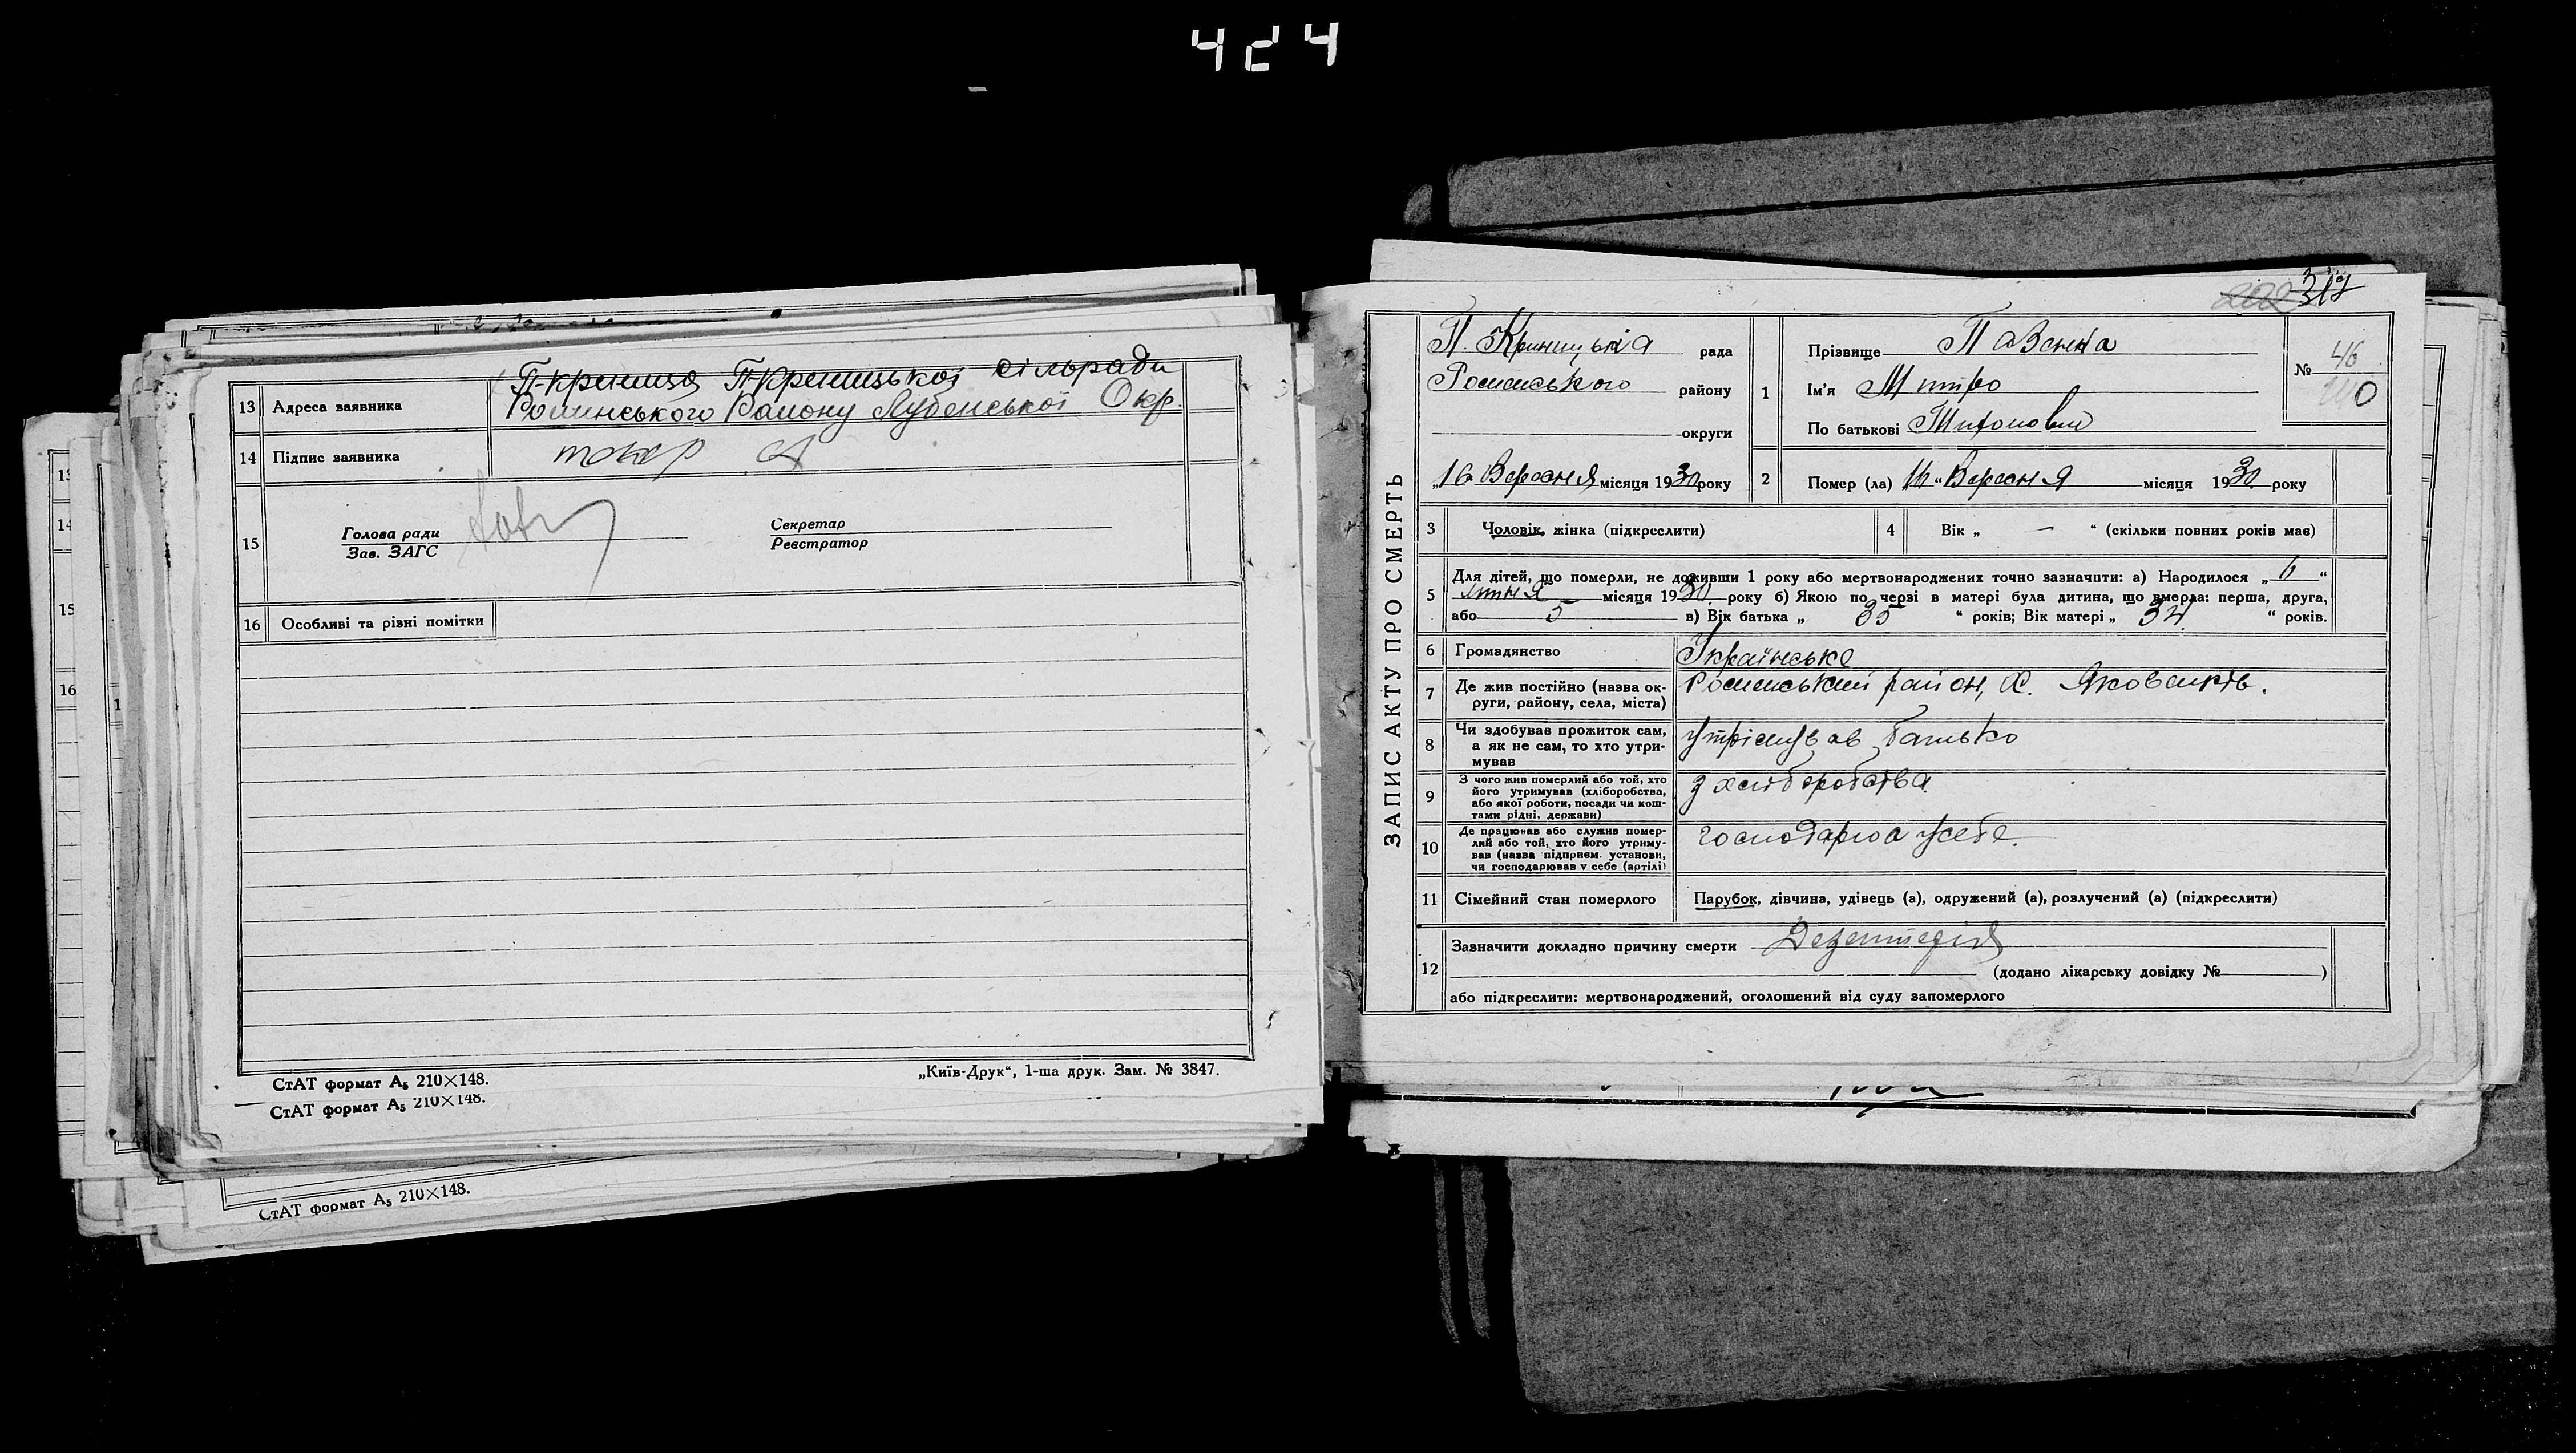 424
13 Адреса заявника
П-крениця П-креницької сільради
Роминського Району Лубенської Окр.
14 Підпис заявника
токар
15 Голова ради
Зав. ЗАГС
Секретар
Реєстратор
16 Особливі та різні помітки
СтАТ формат А5 210×148.
„Київ-Друк“, 1-ша друк. Зам. № 3847.
СтАТ формат А5 210×148.
СтАТ формат А5 210×148.
ЗАПИС АКТУ ПРО СМЕРТЬ
П. Криницька рада
Роменського району
округи
„16 Вересня місяця 1930 року
1 Прізвище
Ім’я Митро
По батькові
№ 46
2 Помер (ла) 16 “ Вересня місяця 1930 року
3 Чоловік, жінка (підкреслити)
4 Вік „ — “ (скільки повних років має)
5 Для дітей, що померли, не доживши 1 року або мертвонароджених точно зазначити: а) Народилося „ 6 “
липня місяця 1930 року б) Якою по черзі в матері була дитина, що вмерла: перша, друга,
або 5 в) Вік батька „ 35 “ років; Вік матері „ 34 “ років.
6 Громадянство Українське
7 Де жив постійно (назва ок-
руги, району, села, міста)
Роменський район, х. Яковенків.
8 Чи здобував прожиток сам,
а як не сам, то хто утри-
мував
утрімував батько
9 З чого жив померлий або той, хто
його утримував (хліборобства,
або якої роботи, посади чи кош-
тами рідні, держави)
з хліборобства
10 Де працював або служив помер-
лий або той, хто його утриму-
вав (назва підприєм. установи,
чи господарював у себе (артілі)
господарюа усебе.
11 Сімейний стан померлого
Парубок, дівчина, удівець (а), одружений (а), розлучений (а) (підкреслити)
12 Зазначити докладно причину смерти
(додано лікарську довідку № )
або підкреслити: мертвонароджений, оголошений від суду запомерлого